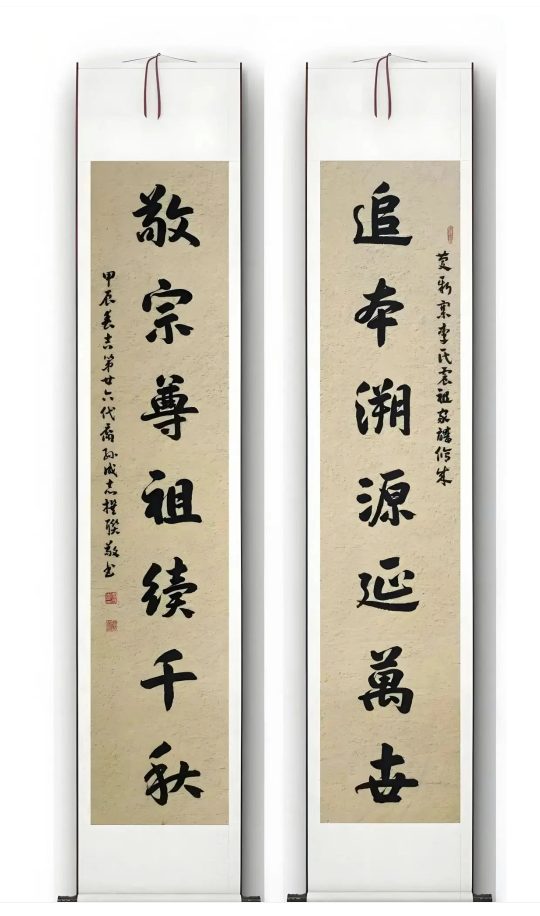 慶新寨李氏震祖家譜修成
追本溯源延萬世
敬宗尊祖續千秋
甲辰春吉第廿六代裔孫成志撰聯敬书